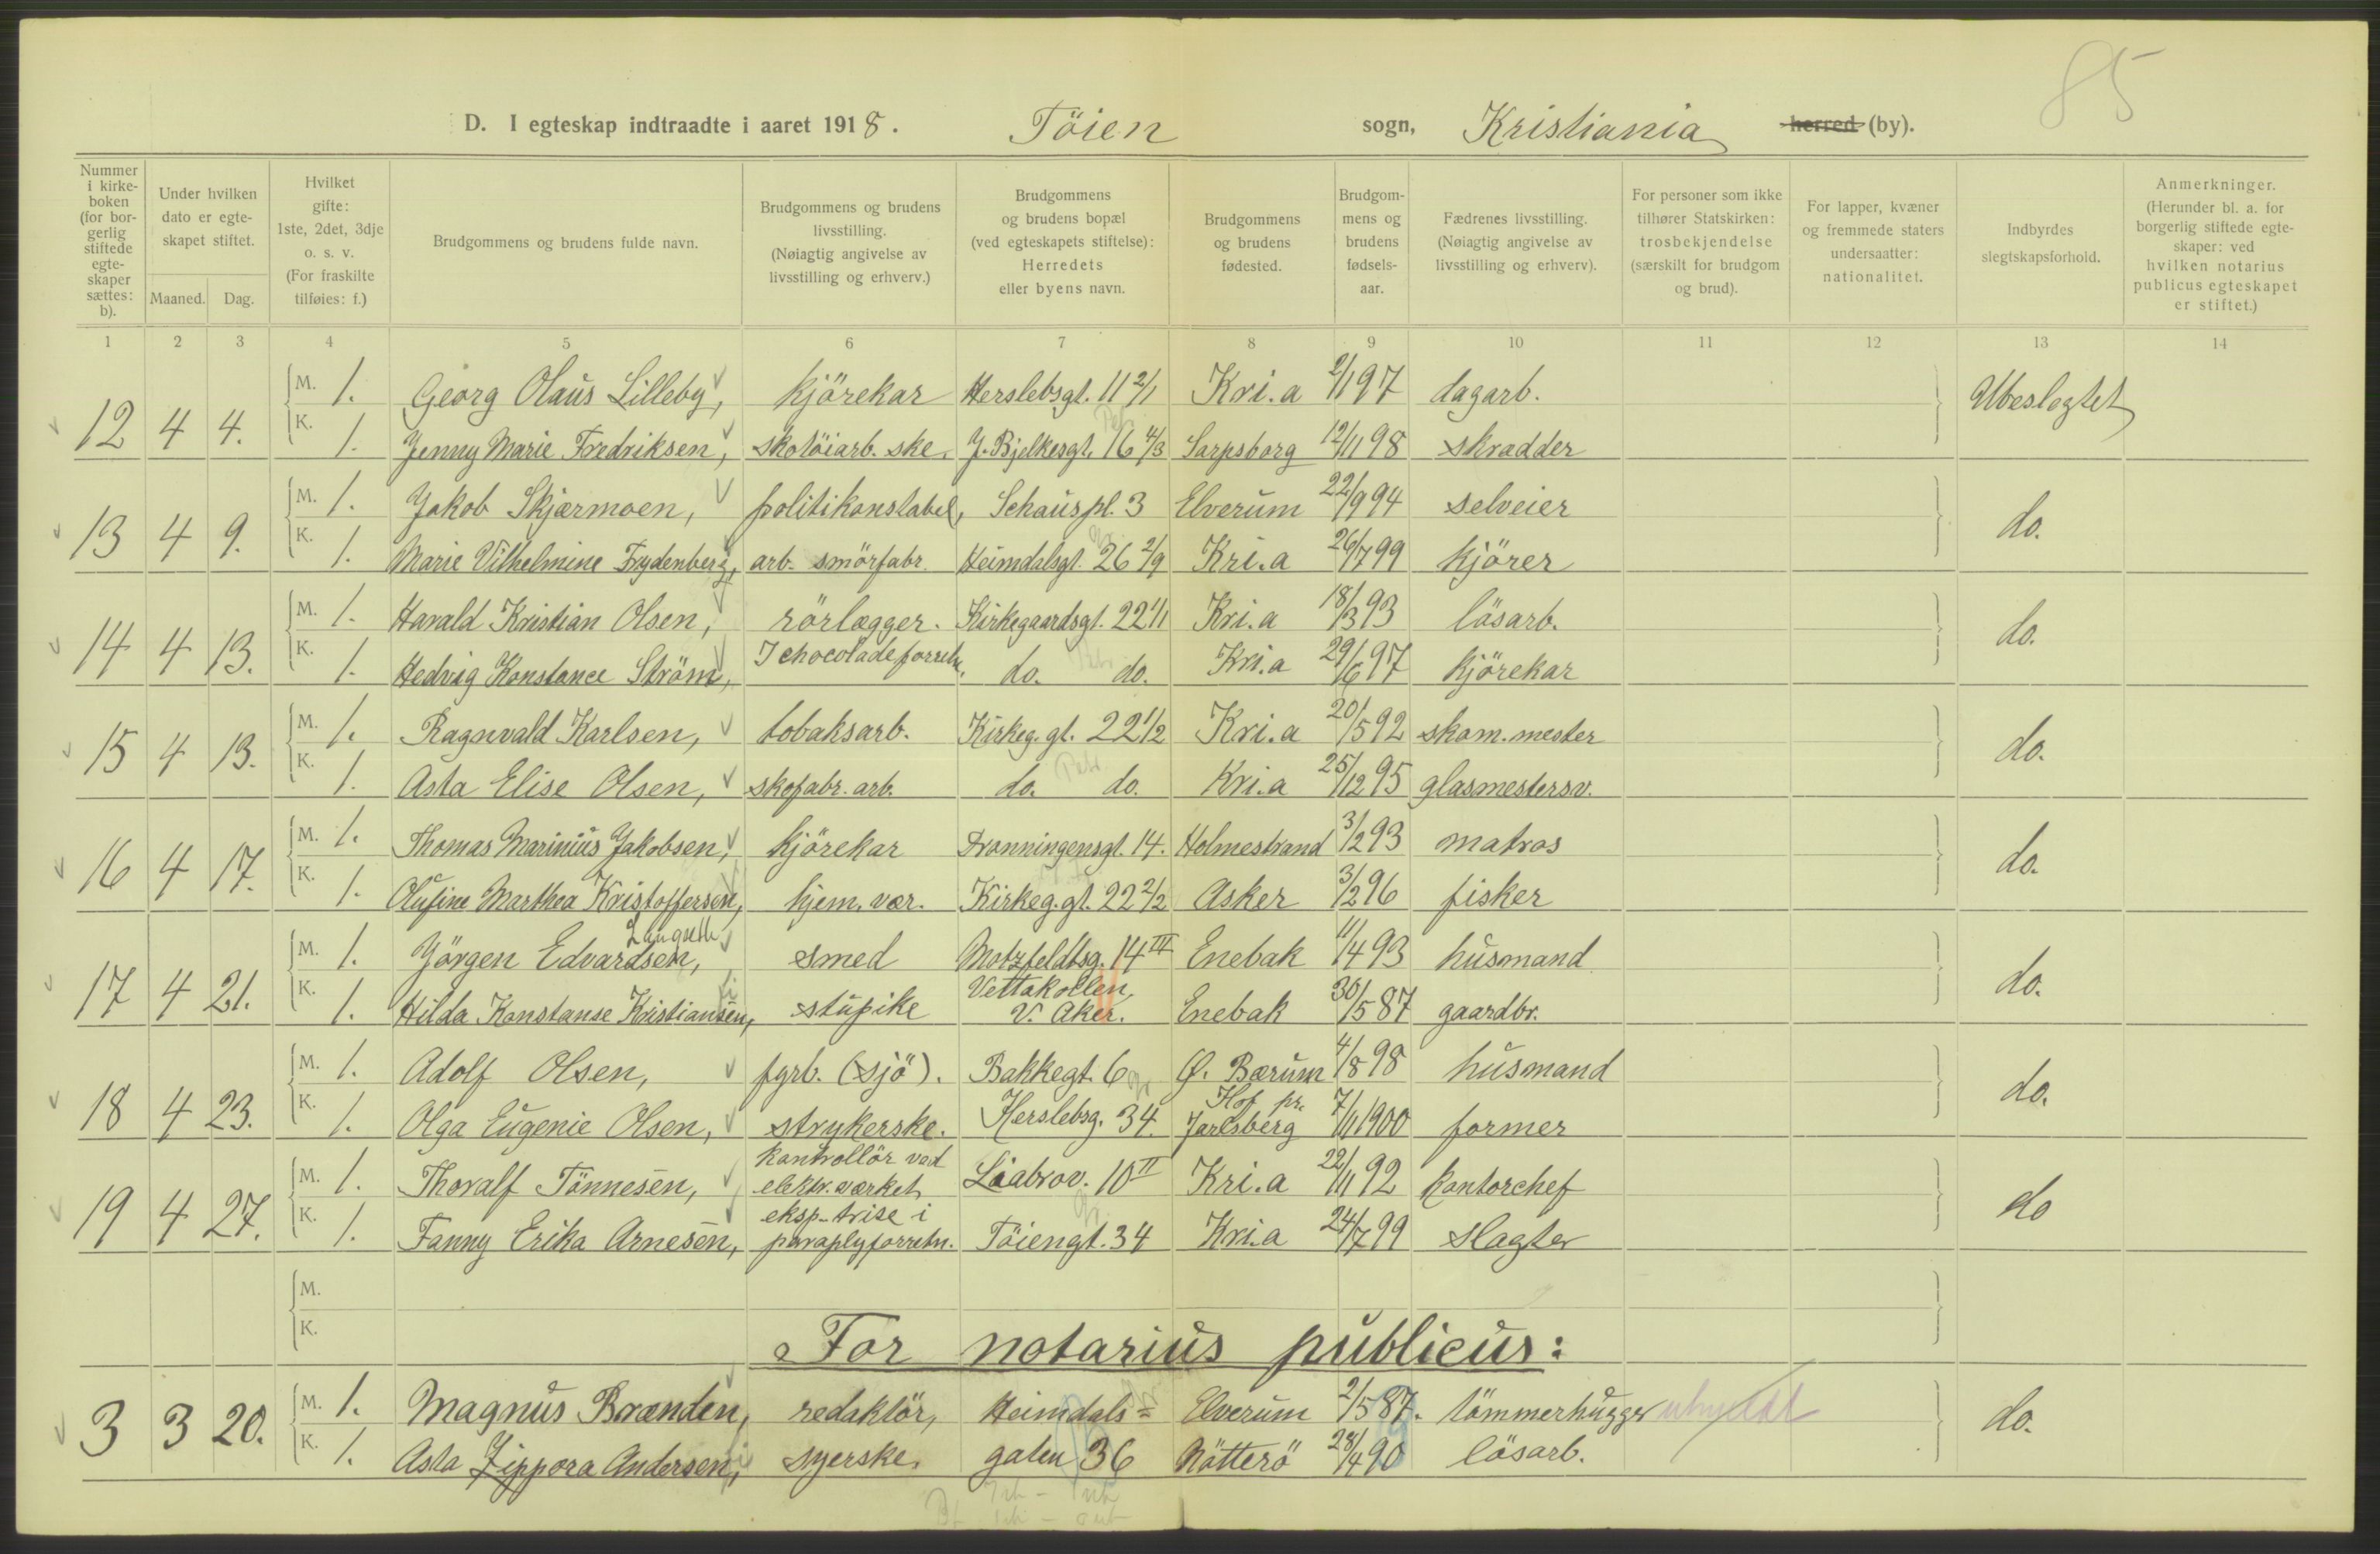 85
D. I egteskap indtraadte i aaret 1918. Töien sogn, Kristiania herred (by).
Nummer i kirke-boken (for bor-gerlig stiftede egte-skaper sættes: b).
Under hvilken dato er egte-skapet stiftet.
Maaned. Dag.
Hvilket gifte: 1ste, 2det, 3dje o. s. v. (For fraskilte tilføies: f.)
Brudgommens og brudens fulde navn.
Brudgommens og brudens livsstilling. (Nøiagtig angivelse av livsstilling og erhverv.)
Brudgommens og brudens bopæl (ved egteskapets stiftelse): Herredets eller byens navn.
Brudgommens og brudens fødested.
Brudgom-mens og brudens fødsels-aar.
Fædrenes livsstilling. (Nøiagtig angivelse av livsstilling og erhverv).
For personer som ikke tilhører Statskirken: trosbekjendelse (særskilt for brudgom og brud).
For lapper, kvæner og fremmede staters undersaatter: nationalitet.
Indbyrdes slegtskapsforhold.
Anmerkninger. (Herunder bl. a. for borgerlig stiftede egte-skaper: ved hvilken notarius publicus egteskapet er stiftet.)
1 2 3 4 5 6 7 8 9 10 11 12 13 14
12 4 4. M. 1. Georg Olaus Lilleby, kjörekar Herslebsgt. 11 2/1 Kri.a 2/1 97 dagarb. Ubeslegtet
K. 1. Jenny Marie Fredriksen, skotöiarb.ske. J. Bjelkesgt. 16 4/3 Sarpsborg 12/11 98 skrædder
13 4 9. M. 1. Jakob Skjærmoen, politikonstabel, Schaus pl. 3 Elverum 22/9 94 selveier do.
K. 1. Marie Vilhelmine Frydenberg, arb. smörfabr. Heimdalsgt. 26 2/9 Kri.a 26/7 99 kjörer
14 4 13. M. 1. Harald Kristian Olsen, rörlægger. Kirkegaardsgt. 22 1/1 Kri.a 18/3 93 lösarb. do.
K. 1. Hedvig Konstance Ström, I chocoladeforretn. do. do. Kri.a 29/6 97 kjörekar
15 4 13. M. 1. Ragnvald Karlsen, tobaksarb. Kirkeg.gt. 22 1/2 Kri.a 20/5 92 skom.mester do.
K. 1. Asta Elise Olsen, skofabr.arb. do. do. Kri.a 25/12 95 glasmestersv.
16 4 17. M. 1. Thomas Marinius Jakobsen, kjörekar Dronningensgt. 14. Holmestrand 3/12 93 matros do.
K. 1. Olufine Marthea Kristoffersen, hjem.vær. Kirkeg.gt. 22 2/2 Asker 3/2 96 fisker
Langseth
17 4 21. M. 1. Jörgen Edvardsen, smed Motzfeldtsg. 14 III Enebak 11/4 93 husmand do.
K. 1. Hilda Konstanse Kristiansen, stupike Vettakollen, V. Aker. Enebak 30/5 87 gaardbr.
18 4 23. M. 1. Adolf Olsen, fyrb. (sjö). Bakkegt. 6 Ø. Bærum 4/8 98 husmand do.
K. 1. Olga Eugenie Olsen, strykerske. Herslebsg. 34. Hof pr. Jarlsberg 7/11 1900 former
19 4 27. M. 1. Thoralf Tönnesen, kontrollör ved elektr.værket Liabrov. 10 II Kri.a 22/11 92 kontorchef do
K. 1. Fanny Erika Arnesen, eksp.trise i paraplyforretn. Töiengt. 34 Kri.a 24/7 99 slagter
M.
K.
For notarius publicus:
3 3 20. M. 1. Magnus Brænden, redaktör, Heimdals= Elverum 2/5 87. tömmerhugger do.
K. 1. Asta Zippora Andersen, syerske, gaten 36 Nötterö 28/4 90 lösarb.